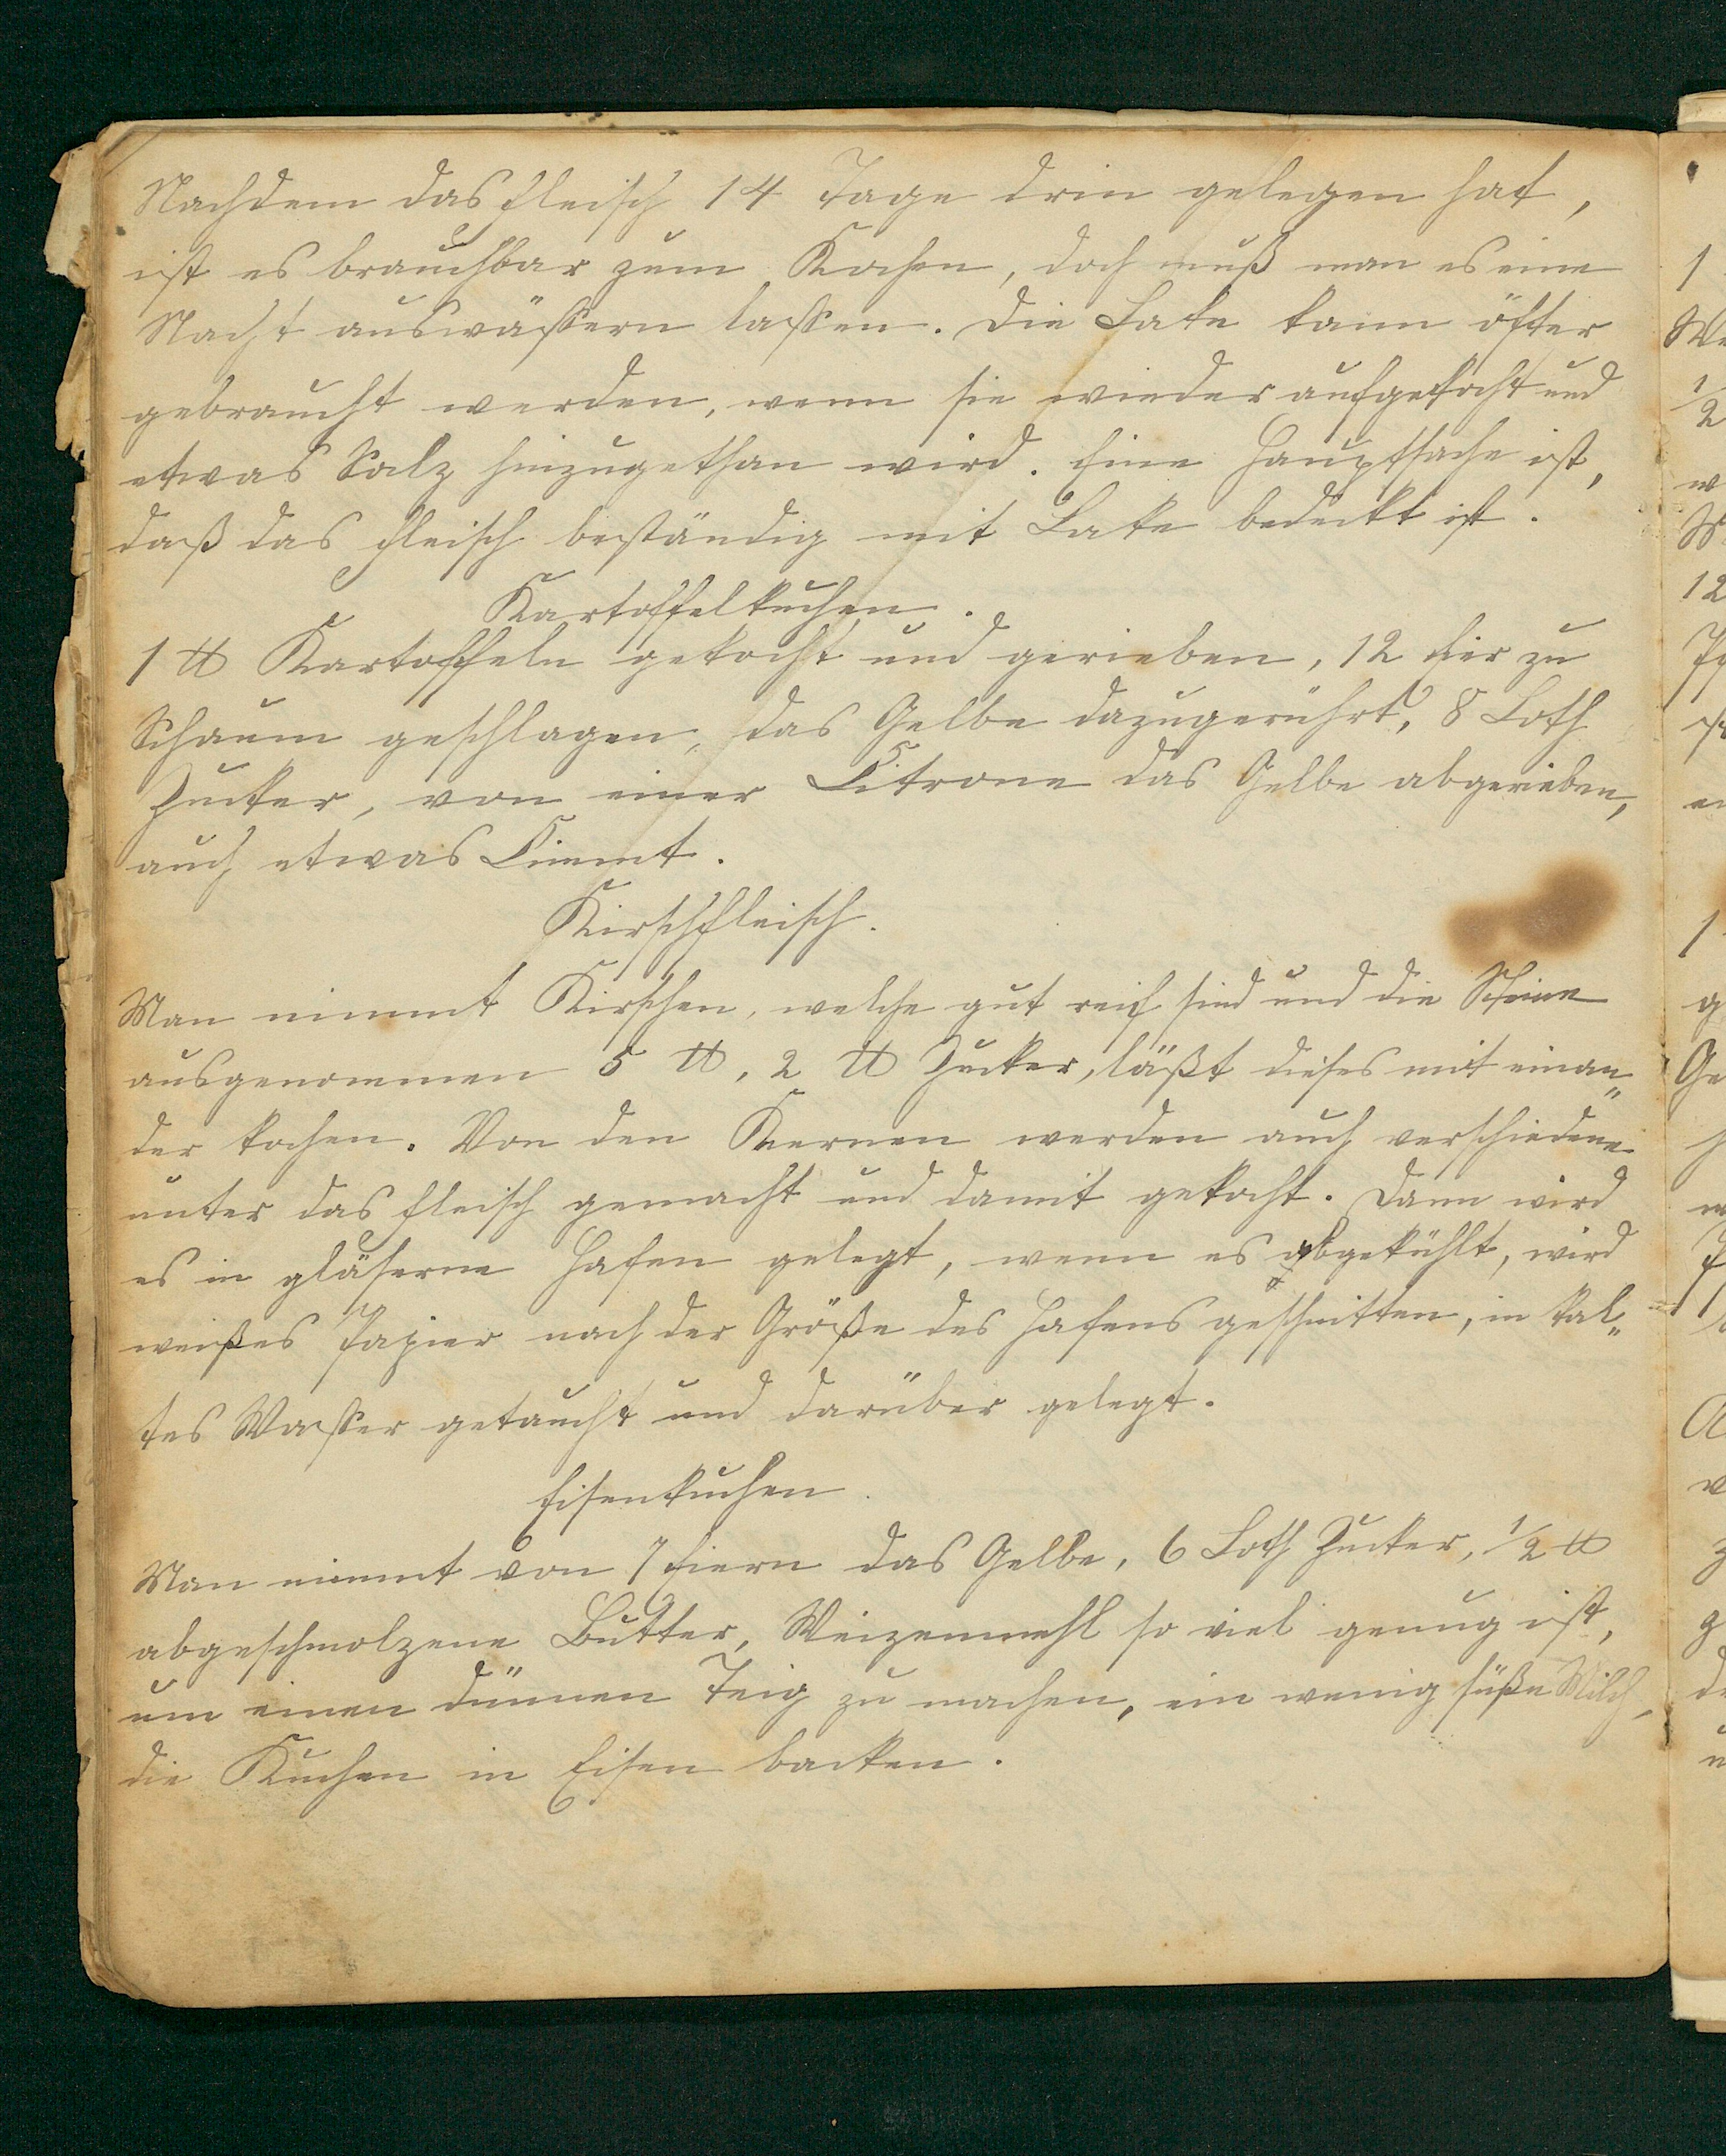 Nachdem das Fleisch 14 Tage drin gelegen hat,
ist es brauchbar zum Kochen, doch muß man es eine
Nacht auswässern lassen. Die Lake kann öfter
gebraucht werden, wenn sie wieder aufgekocht und
etwas Salz hinzugethan wird. Eine Hauptsache ist,
daß das Fleisch beständig mit Lake bedeckt ist.
Kartoffelkuchen.
1 ℔ Kartoffeln gekocht und gerieben, 12 Eier zu
Schaum geschlagen, das Gelbe dazugerührt, 8 Loth
Zucker, von einer Citrone das Gelbe abgerieben,
auch etwas Cimmt.
Kirschfleisch.
Man nimmt Kirschen, welche gut reif sind und die Steine
ausgenommen 5 ℔, 2 ℔ Zucker, läßt dieses mit einan„
der kochen. Von den Kernen werden auch verschiedene
unter das Fleisch gemacht und damit gekocht. Dann wird
es in gläserne Hafen gelegt, wenn es abgekühlt, wird
weißes Papier nach der Größe des Hafens geschnitten, in kal„
tes Wasser getaucht und darüber gelegt.
Eisenkuchen.
Man nimmt von 7 Eiern das Gelbe, 6 Loth Zucker, 1/2 ℔
abgeschmolzene Butter, Weizenmehl so viel genug ist,
um einen dünnen Teig zu machen, ein wenig süße Milch,
die Kuchen in Eisen backen.